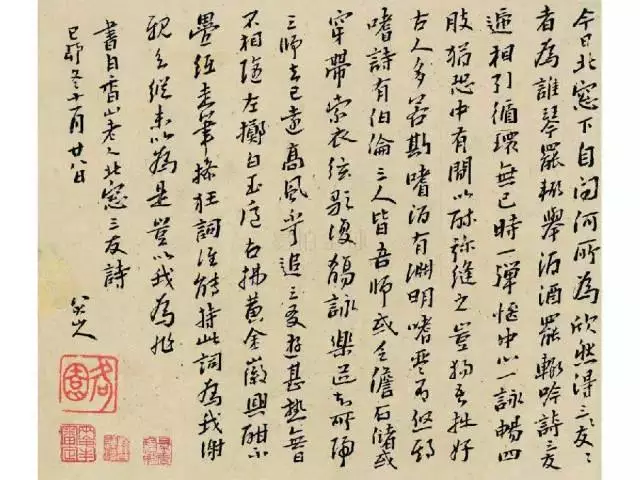 今日北窓下自問何所為欣然得三友〻
者為誰琴罷輙舉酒酒罷輙吟詩三友
遞相引循環無已時一彈愜中心一詠暢四
肢猶恐中有間以酔弥縫之豈獨吾拙好
古人多若斯嗜酒有淵明嗜琴有啓期
嗜詩有伯倫三人皆吾師或乏儋石儲或
穿帶索衣絃歌復觴詠樂道知所歸
三師去已遠高風不可追三友遊甚熟無日
不相隨左擲白玉卮右拂黃金徽興酣不
疊紙走筆操狂詞誰能持此詞為我謝
親知縱未以為是豈以我為非
書白香山老人北窓三友詩
己卯冬十一月廿八日
八大山人